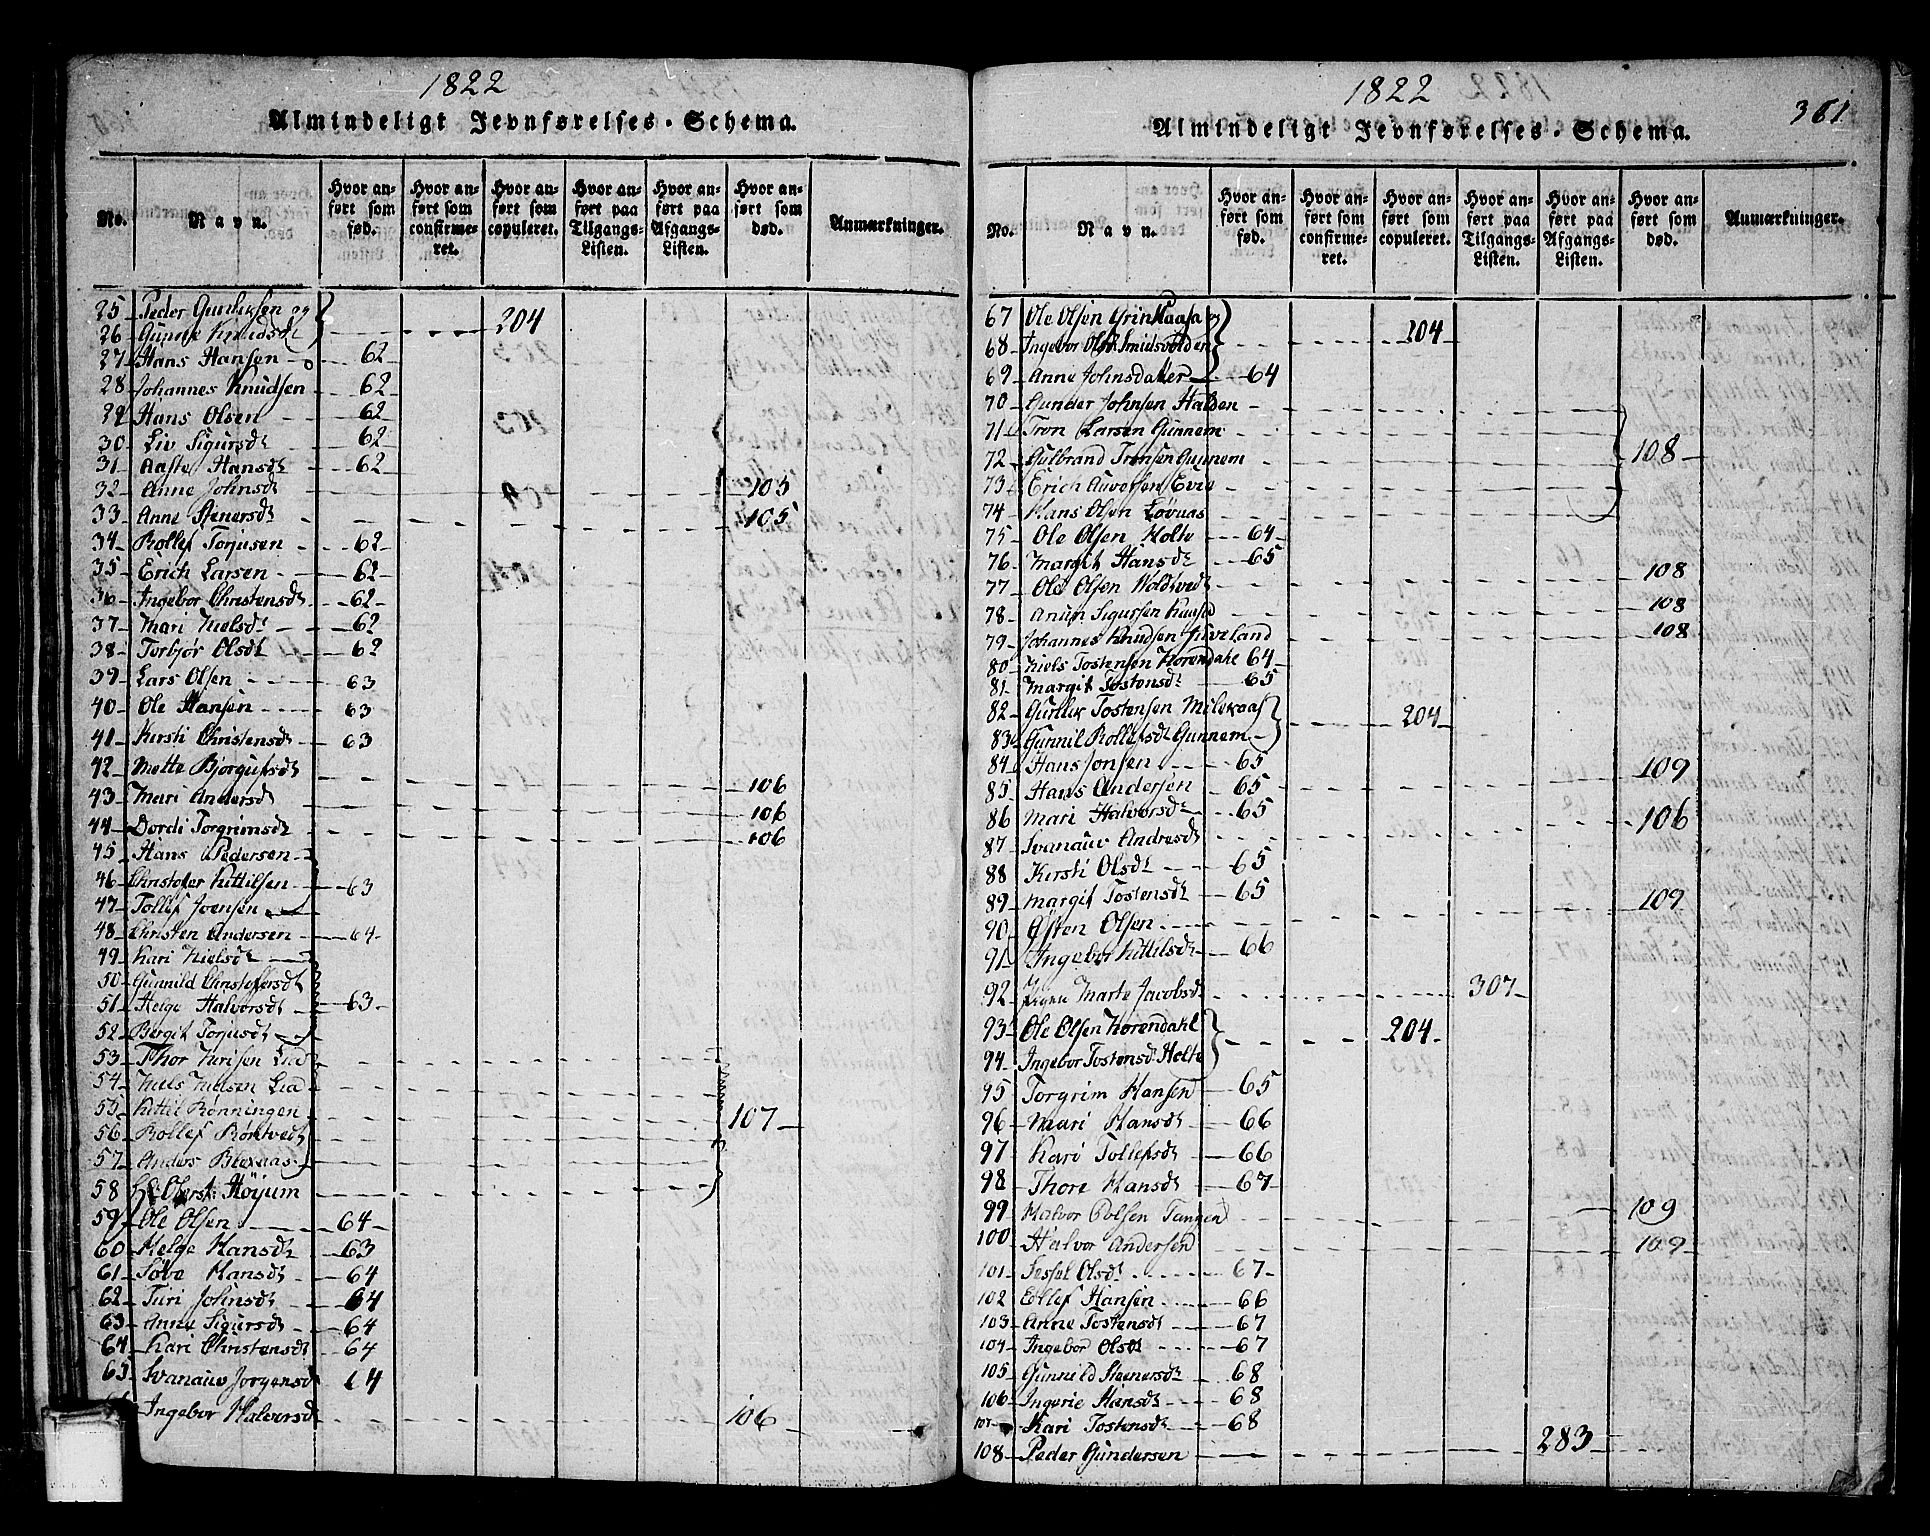 1822
Almindeligt Jevnførelses-Schema.
No.
Navn.
Hvor anført som fød.
Hvor anført som confirmeret.
Hvor anført som copuleret.
Hvor anført paa Tilgangs-Listen.
Hvor anført paa Afgangs-Listen.
Hvor anført som død.
Anmærkninger.
25 Peder Gunliksen og
26 Gunne Knudsdt 204
27 Hans Hansen 62
28 Johannes Knudsen 62
29 Hans Olsen 62
30 Liv Sigursdt 62
31 Aaste Hansdt 62
32 Anne Johnsdt 105
33 Anne Stenersdt 105
34 Rollef Torjusen 62
35 Erich Larsen 62
36 Ingebor Christensdt 62
37 Mari Nielsdt 62
38 Torbjør Olsdt 62
39 Lars Olsen 63
40 Ole Hansen 63
41 Kersti Christensdt 63
42 Mette Bjorgufsdt 106
43 Mari Andersdt 106
44 Dordi Torgrimsdt 106
45 Hans Pedersen
46 Christofer Kittilsen 63
47 Tollef Joensen
48 Christen Andersen 64
49 Kari Nielsdt
50 Gunnild Christofersdt
51 Helge Halvorsdt 63
52 Bergit Torjusdt
53 Thor Lia
54 Niels Nielsen Lia
55 Kittil Rønningen 107
56 Rollef
57 Anders
58 Høyum
59 Ole Olsen 64
60 Helge Hansdt 63
61 Søve Hansdt 64
62 Turi Johnsdt 64
63 Anne Sigursdt 64
64 Kari Christensdt 64
65 Svanauv Jorgensdt 64
Ingebor Halvorsdt 106
1822
361
Almindeligt Jevnførelses-Schema.
No.
Navn.
Hvor anført som fød.
Hvor anført som confirmeret.
Hvor anført som copuleret.
Hvor anført paa Tilgangs-Listen.
Hvor anført paa Afgangs-Listen.
Hvor anført som død.
Anmærkninger.
67 Ole Olsen og
68 Ingebor Olsdt 204
69 Anne Johnsdatter 64
70 Gunder Johnsen Halden
71 Tron Larsen Gunnem
72 Gulbrand Tronsen Gunnem 108
73 Erich
74 Hans Olsen Løvaas
75 Ole Olsen Holte 64
76 Margit Hansdt 65
77 Ole Olsen 108
78 Sigursen 108
79 Johannes Knudsen 108
80 Niels Tostensen Korendahl 64
81 Margit Tostensdt 65
82 Gurllik Tostensen
83 Gunnil Rollefsdt Gunnem 204
84 Hans Jonsen 65
85 Hans Andersen 65 109
86 Mari Halvorsdt 65
87 Svanauv Andresdt 106
88 Kersti Olsdt 65
89 Margit Tostensdt 65
90 Østen Olsen 109
91 Ingebor Kittilsdt 66
92 Marte Jacobsdt 307
93 Ole Olsen Korendahl
94 Ingebor Tostensdt Holte 204
95 Torgrim Hansen 65
96 Mari Hansdt 66
97 Kari Tollefsdt 66
98 Thore Hansdt 67
99 Halvor Tangen 109
100 Halvor Andersen 109
101 Olsdt 67
102 Ellef Hansen 66
103 Anne Tostensdt 67
104 Ingebor Olsdt 67
105 Gunnild Stenersdt 68
106 Ingerie Hansdt 68
107 Kari Tostensdt 68
108 Peder Gundersen 283